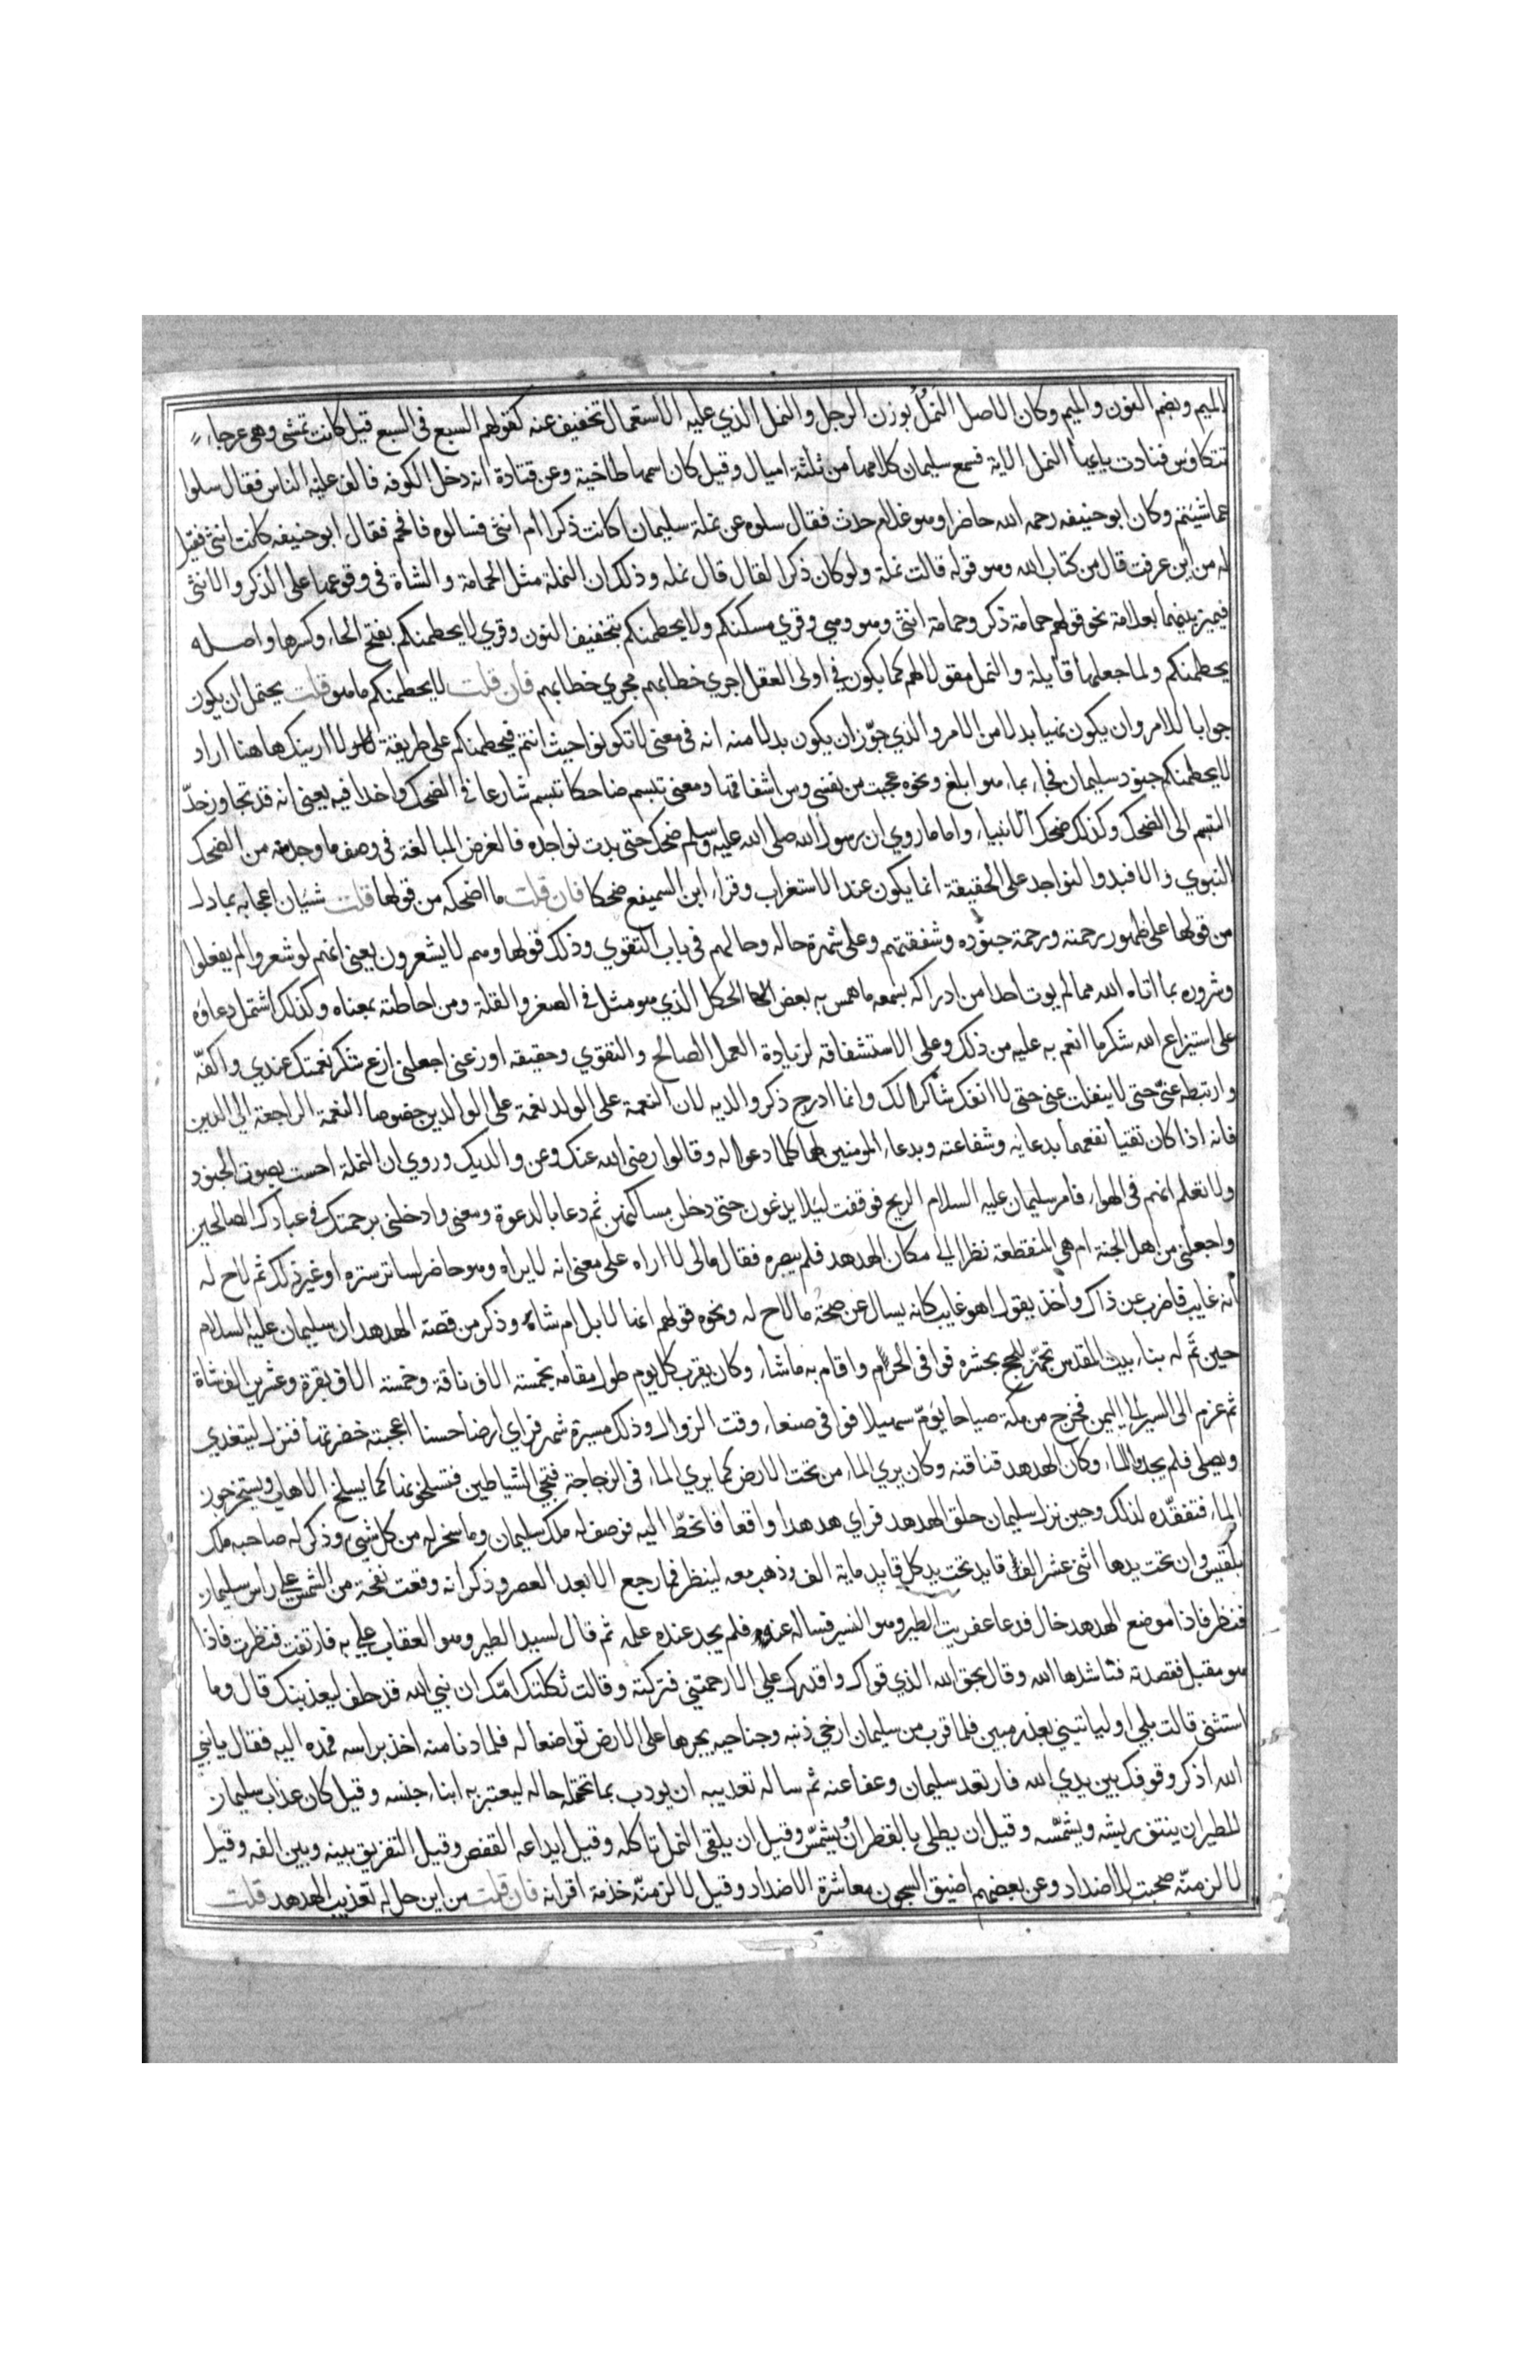 الميم وبضم النون والميم وكان الاصل النمل بوزن الرجل والنمل الذي عليه الاستعمال تخفيف عنه كقولهم السبع في السبع قيل كانت تمشي وهي عرجاء
تتكاوس فنادت يايها النمل الاية فسمع سليمان كلامها من ثلثة اميال وقيل كان اسمها طاخية وعن قتادة انه دخل الكوفه فالتف عليه الناس فقال سلوا
عما شيتم وكان ابو حنيفه رحمه الله حاضرا وهو غلام حدث فقال سلوه عن نملة سليمان اكانت ذكرا ام انثى فسالوه فافحم فقال ابو حنيفه كانت انثى فقيل
له من اين عرفت قال من كتاب الله وهو قوله قالت نملة ولو كان ذكرا لقال قال نمله وذلك ان النملة مثل الحمامة والشاة في وقوعها على الذكر والانثى
فيميز بينهما بعلامة نحو قولهم حمامة ذكر وحمامة انثى وهو وهي وقري مسكنكم ولا يحطمنكم بتخفيف النون وقري لا يحطمنكم بفتح الحاء وكسرها واصله
يحطمنكم ولما جعلها قايلة والنمل مقولا لهم كما يكون في اولى العقل اجري خطابهم مجري خطابهم فان قلت لا يحطمنكم ما هو قلت يحتمل ان يكون
جوابا للامر وان يكون نهيا بدلا من الامر والذي جوز ان يكون بدلا منه انه في معنى لا تكونوا حيث انتم فيحطمنكم على طريقة لا ارينك هاهنا اراد
لا يحطمنكم جنود سليمان فجاء بما هو ابلغ ونحوه عجبت من نفسي ومن اشفاقها ومعنى تبسم ضاحكا تبسم شارعا في الضحك واخذا فيه يعنى انه قد تجاوز حد
التبسم الى الضحك وكذلك ضحك الانبياء واما ما روي ان رسول الله صلى الله عليه وسلم ضحك حتى بدت نواجذه فالغرض المبالغة في وصف ما وجد منه من الضحك
النبوي والا فبدو النواجد على الحقيقة انما يكون عند الاستغراب وقراء ابن السميفع ضحكا فان قلت ما اضحكه من قولها قلت شيان اعجابه بما دل
من قولها على ظهور رحمته ورحمة جنوده وشفقتهم وعلى شهرة حاله وحالهم في باب التقوي وذلك قولها وهم لا يشعرون يعنى انهم لو شعروا لم يفعلوا
وسروره بما اتاه الله مما لم يوت احدا من ادراكه بسمعه ما همس به بعض الحكل الذي هو مثل في الصغر والقلة ومن احاطته بمعناه وكذلك اشتمل دعاؤه
على استيزاع الله شكر ما انعم به عليه من ذلك وعلى الاستشفاقه لزيادة العمل الصالح والتقوي وحقيقه اوزعنى اجعلنى ازع شكر نعمتك عندي واكفه
وارتبطه عني حتى لا ينفلت عنى حتى لا انفك شاكرا لك وانما ادرج ذكر والديه لان النعمة على الولد نعمة على الوالدين خصوصا النعمة الراجعة الى الدين
فانه اذا كان تقيا نفعهما بدعايه وشفاعته وبدعاء المومنين لهما كلما دعوا له وقالوا رضى الله عنك وعن والديك وروي ان النملة احست بصوت الجنود
ولا تعلم انهم في الهواء فامر سليمان عليه السلام الريح فوقفت ليلا يذعرن حتى دخلن مساكنهن ثم دعا بالدعوة ومعنى وادخلنى برحمتك في عبادك الصالحين
واجعلنى من اهل الجنة ام هي المنقطعة نظر الى مكان الهدهد فلم يبصره فقال مالى لا اراه على معنى انه لا يراه وهو حاضر لساتر ستره او غير ذلك ثم لاح له
انه غايب فاضرب عن ذاك واخذ يقول اهو غايب كانه يسال عن صحة ما لاح له ونحوه قولهم انها لابل ام شاء وذكر من قصة الهدهد ان سليمان عليه السلام
حين تم له بناء بيت المقدس تجهز للحج بحشره فوافى الحرم واقام به ما شاء وكان يقرب كل يوم طول مقامه بخمسة الاف ناقة وخمسة الاف بقرة وعشرين الف شاة
ثم عزم الى السير الى اليمن فخرج من مكة صباحا يؤم سهيلا فوافى صنعاء وقت الزوال وذلك مسيرة شهر فراي ارضا حسنا اعجبته خضرتها فنزل ليتغدي
ويصلى فلم يجدوا الماء وكان الهدهد قناقنه وكان يري الماء من تحت الارض كما يري الماء في الزجاجة فيجى الشياطين فتسلخونها كما يسلخ الاهاب ويستخرجون
الماء فتفقده لذلك وحين نزل سليمان حلق الهدهد فراي هدهدا واقعا فانحط اليه فوصف له ملك سليمان وما سخر له من كل شيء وذكر له صاحبه ملك
بلقيس وان تحت يدها اثنى عشر الف قايد تحت يد كل قايد ماية الف وذهب معه لينظر فما رجع الا بعد العصر وذكر انه وقعت نفحة من الشمس على راس سليمان
فنظر فاذا موضع الهدهد خال فدعا عفريت الطير وهو النسر فساله عنه فلم يجد عنده علمه ثم قال لسيد الطير وهو العقاب علي به فارتفعت فنظرت فاذا
هو مقبل فقصدته فناشدها الله وقال بحق الله الذي قواك واقدرك علي الا رحمتني فتركته وقالت ثكلتك امك ان نبي الله قد حلف ليعذبنك قال وما
استثنى قالت بلى او لياتيني بعذر مبين فلما قرب من سليمان ارخي ذنبه وجناحيه يجرها على الارض تواضعا له فلما دنا منه اخذ براسه فمده اليه فقال يا نبي
الله اذكر وقوفك بين يدي الله فارتعد سليمان وعفا عنه ثم ساله تعذيبه ان يودب بما تحتمله حاله ليعتبر به ابناء جنسه وقيل كان عذاب سليمان
للطير ان ينتف ريشه ويشمسه وقيل ان يطلى بالقطران ويشمس وقيل ان يلقى النمل تاكله وقيل ايداعه القفص وقيل التفريق بينه وبين الفه وقيل
لالزمنه صحبت الاضداد وعن بعضهم اضيق السجون معاشرة الاضداد وقيل لالزمنه خدمة اقرانه فان قلت من اين حل له تعذيب الهدهد قلت